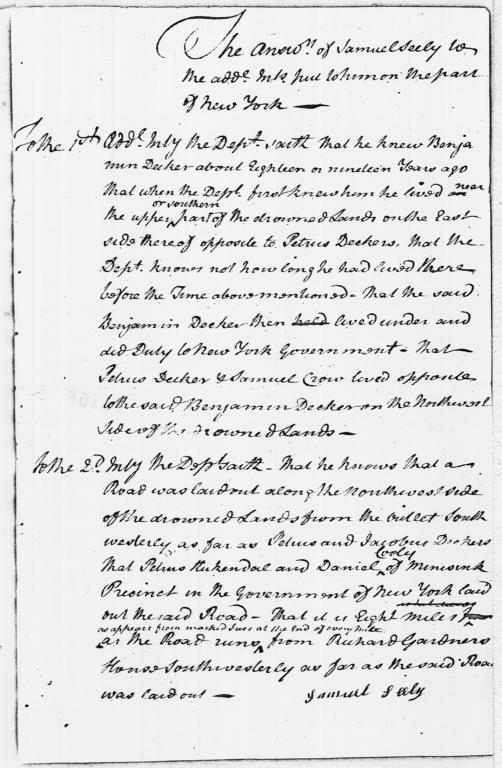 The Answr. of Samuel Seely to
the addl. Inty. put to him on the part
of New York —
To the 1st. Addl. Inty the Dept. saith that he knew Benja
min Decker about Eighteen or nineteen Years ago
that when the Dept. first knew him he lived near
the upper or southern part of the drowned Lands on the East
side thereof opposite to Petrus Deckers. that the
Dept. knows not how long he had lived there
before the Time above mentioned - that the said
Benjamin Decker then held lived under and
did Duty to New York Government - that
Petrus Decker & Samuel Crow lived opposite
to the said Benjamin Decker on the Northwest
Side of the drowned Lands —
to the 2d. Inty the Dept saith - that he knows that a
Road was laid out along the Northwest side
of the drowned Lands from the outlet South
westerly as far as Petrus and Jacobus Deckers
that Petrus Kukendal and Daniel Cooly of Minisink
Precinct in the Government of New York laid
out the said Road - that it is Eight miles
as appears from marked trees at the End of every mile
as the Road runs from Richard Gardners
House Southwesterly as far as the said Road
was laid out —
Samuel Seely